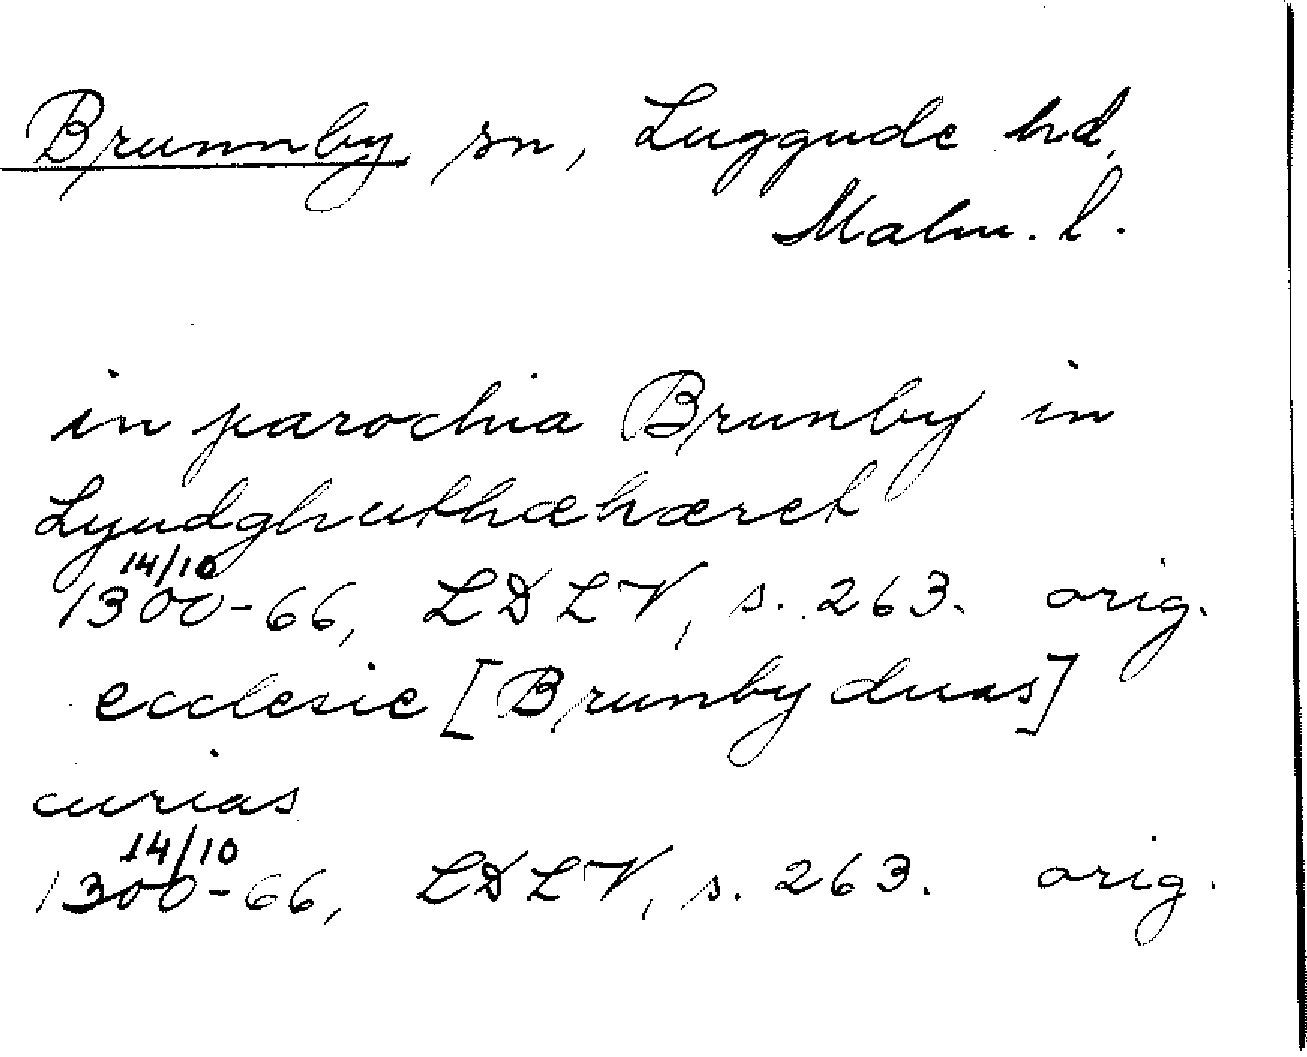 Brunnby sn, Luggude hd,
Malm. l.
in parochia Brunby in
Lyudghuthæhæret
14/10
1300-66, LDLV, s. 263. orig.
ecclesie [Brunby duas]
curias
14/10
1300-66, LDLV, s. 263. orig.